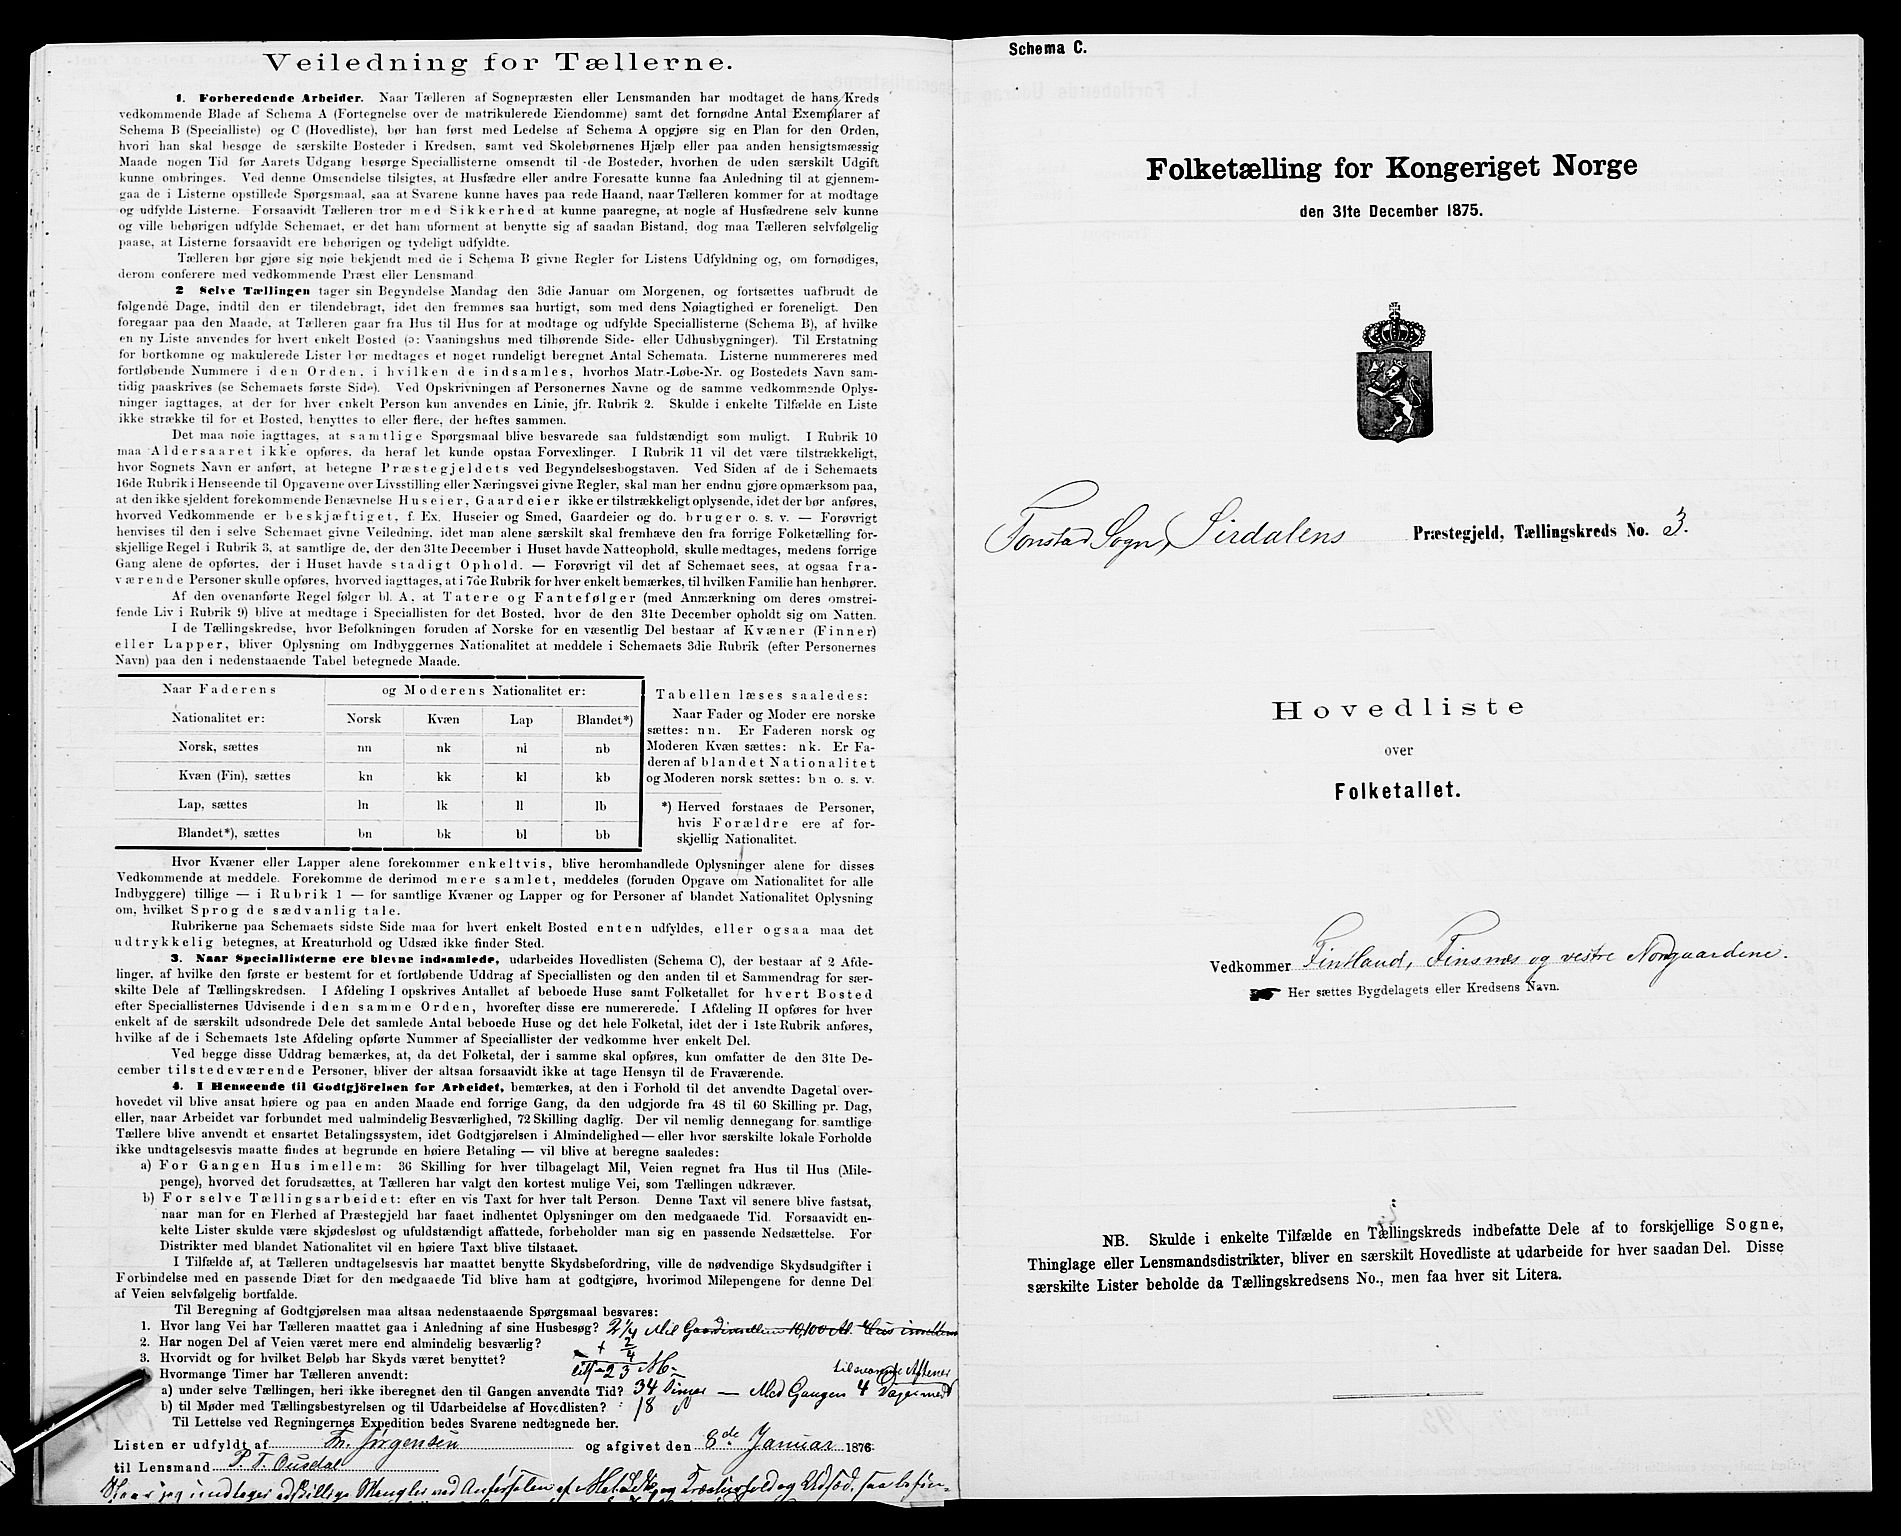 Veiledning for Tællerne.
1. Forberedende Arbeider. Naar Tælleren af Sognepræsten eller Lensmanden har modtaget de hans Kreds
vedkommende Blade af Schema A (Fortegnelse over de matrikulerede Eiendomme) samt det fornødne Antal Exemplarer af
Schema B (Specialliste) og C (Hovedliste), bør han først med Ledelse af Schema A opgjøre sig en Plan for den Orden,
hvori han skal besøge de særskilte Bosteder i Kredsen, samt ved Skolebørnenes Hjælp eller paa anden hensigtsmæssig
Maade nogen Tid før Aarets Udgang besørge Speciallisterne omsendt til de Bosteder, hvorhen de uden særskilt Udgift
kunne ombringes. Ved denne Omsendelse tilsigtes, at Husfædre eller andre Foresatte kunne faa Anledning til at gjennem-
gaa de i Listerne opstillede Spørgsmaal, saa at Svarene kunne haves paa rede Haand, naar Tælleren kommer for at modtage
og udfylde Listerne. Forsaavidt Tælleren tror med Sikkerhed at kunne paaregne, at nogle af Husfædrene selv kunne
og ville behørigen udfylde Schemaet, er det ham uforment at benytte sig af saadan Bistand, dog maa Tælleren selvfølgelig
paase, at Listerne forsaavidt ere behørigen og tydeligt udfyldte.
Tælleren bør gjøre sig nøie bekjendt med de i Schema B givne Regler for Listens Udfyldning og, om fornødiges,
derom conferere med vedkommende Præst eller Lensmand
2 Selve Tællingen tager sin Begyndelse Mandag den 3die Januar om Morgenen, og fortsættes uafbrudt de
følgende Dage, indtil den er tilendebragt, idet den fremmes saa hurtigt, som med dens Nøiagtighed er foreneligt. Den
foregaar paa den Maade, at Tælleren gaar fra Hus til Hus for at modtage og udfylde Speciallisterne (Schema B), af hvilke
en ny Liste anvendes for hvert enkelt Bosted (ɔ: Vaaningshus med tilhørende Side- eller Udhusbygninger). Til Erstatning
for bortkomne og makulerede Lister bør medtages et noget rundeligt beregnet Antal Schemata. Listerne nummereres med
fortløbende Nummere i den Orden, i hvilken de indsamles, hvorhos Matr.-Løbe-Nr. og Bostedets Navn sam-
tidig paaskrives (se Schemaets første Side). Ved Opskrivningen af Personernes Navne og de samme vedkommende Oplys-
ninger iagttages, at der for hver enkelt Person kun anvendes en Linie, jfr. Rubrik 2. Skulde i enkelte Tilfælde en Liste
ikke strække til for et Bosted, benyttes to eller flere, der heftes sammen.
Det maa nøie iagttages, at samtlige Spørgsmaal blive besvarede saa fuldstændigt som muligt. I Rubrik 10
maa Aldersaaret ikke opføres, da heraf let kunde opstaa Forvexlinger. I Rubrik 11 vil det være tilstrækkeligt,
hvor Sognets Navn er anført, at betegne Præstegjeldets ved Begyndelsesbogstaven. Ved Siden af de i Schemaets
16de Rubrik i Henseende til Opgaverne over Livsstilling eller Næringsvei givne Regler, skal man her endnu gjøre opmærksom paa,
at den ikke sjeldent forekommende Benævnelse Huseier, Gaardeier ikke er tilstrækkeligt oplysende, idet der bør anføres,
hvorved Vedkommende er beskjæftiget, f. Ex. Huseier og Smed, Gaardeier og do. bruger o. s. v. — Forøvrigt
henvises til den i selve Schemaet givne Veiledning, idet man alene særskilt skal fremhæve den fra forrige Folketælling for-
skjellige Regel i Rubrik 3, at samtlige de, der den 31te December i Huset havde Natteophold, skulle medtages, medens forrige
Gang alene de opførtes, der i Huset havde stadigt Ophold. — Forøvrigt vil det af Schemaet sees, at ogsaa fra-
værende Personer skulle opføres, hvorved iagttages, at i 7de Rubrik for hver enkelt bemærkes, til hvilken Familie han henhører.
Af den ovenanførte Regel følger bl. A. at Tatere og Fantefølger (med Anmærkning om deres omstrei-
fende Liv i Rubrik 9) blive at medtage i Speciallisten for det Bosted, hvor de den 31te December opholdt sig om Natten.
I de Tællingskredse, hvor Befolkningen foruden af Norske for en væsentlig Del bestaar af Kvæner (Finner)
eller Lapper, bliver Oplysning om Indbyggernes Nationalitet at meddele i Schemaets 3die Rubrik (efter Personernes
Navn) paa den i nedenstaaende Tabel betegnede Maade.
Naar Faderens og Moderens Nationalitet er:
Nationalitet er: Norsk Kvæn Lap Blandet*)
Norsk, sættes nn nk nl nb
Kvæn (Fin), sættes kn kk kl kb
Lap, sættes ln lk ll lb
Blandet*), sættes bn bk bl bb
Tabellen læses saaledes:
Naar Fader og Moder ere norske
sættes: nn. Er Faderen norsk og
Moderen Kvæn sættes: nk. Er Fa-
deren af blandet Nationalitet
og Moderen norsk sættes: bn o. s. v.
*) Herved forstaaes de Personer,
hvis Forældre ere af for-
skjellig Nationalitet.
Hvor Kvæner eller Lapper alene forekommer enkeltvis, blive heromhandlede Oplysninger alene for disses
Vedkommende at meddele. Forekomme de derimod mere samlet, meddeles (foruden Opgave om Nationalitet for alle
Indbyggere) tillige — i Rubrik 1 — for samtlige Kvæner og Lapper og for Personer af blandet Nationalitet Oplysning
om, hvilket Sprog de sædvanlig tale.
Rubrikerne paa Schemaets sidste Side maa for hvert enkelt Bosted enten udfyldes, eller ogsaa maa det
udtrykkelig betegnes, at Kreaturhold og Udsæd ikke finder Sted.
3. Naar Speciallisterne ere blevne indsamlede, udarbeides Hovedlisten (Schema C), der bestaar af 2 Afde-
linger, af hvilke den første er bestemt for et fortløbende Uddrag af Speciallisten og den anden til et Sammendrag for sær-
skilte Dele af Tællingskredsen. I Afdeling I opskrives Antallet af beboede Huse samt Folketallet for hvert Bosted
efter Speciallisternes Udvisende i den samme Orden, hvorefter disse ere nummererede. I Afdeling II opføres for hver
enkelt af de særskilt udsondrede Dele det samlede Antal beboede Huse og det hele Folketal, idet der i 1ste Rubrik anføres,
hvilke af de i Schemaets 1ste Afdeling opførte Nummer af Speciallister der vedkomme hver enkelt Del.
Ved begge disse Uddrag bemærkes, at, da det Folketal, der i samme skal opføres, kun omfatter de den 31te De-
cember tilstedeværende Personer, bliver der altsaa forsaavidt ikke at tage Hensyn til de Fraværende.
4. I Henseende til Godtgjörelsen for Arbeidet, bemærkes, at den i Forhold til det anvendte Dagetal over-
hovedet vil blive ansat høiere og paa en anden Maade end forrige Gang, da den udgjorde fra 48 til 60 Skilling pr. Dag,
eller, naar Arbeidet var forbundet med ualmindelig Besværlighed, 72 Skilling daglig. Der vil nemlig dennegang for samtlige
Tællere blive anvendt et ensartet Betalingssystem, idet Godtgjørelsen i Almindelighed — eller hvor særskilte lokale Forholde
ikke undtagelsesvis maatte findes at begrunde en høiere Betaling — vil blive at beregne saaledes:
a) For Gangen Hus imellem: 36 Skilling for hver tilbagelagt Mil, Veien regnet fra Hus til Hus (Mile-
penge), hvorved det forudsættes, at Tælleren har valgt den kortest mulige Vei, som Tællingen udkræver.
b) For selve Tællingsarbeidet: efter en vis Taxt for hver talt Person. Denne Taxt vil senere blive fastsat,
naar man for en Flerhed af Præstegjeld har faaet indhentet Oplysninger om den medgaaede Tid. Forsaavidt en-
kelte Lister skulde være skjødesløst og ufuldstændigt affattede, forbeholder man sig en passende Nedsættelse. For
Distrikter med blandet Nationalitet vil en høiere Taxt blive tilstaaet.
I Tilfælde af, at Tælleren undtagelsesvis har maattet benytte Skydsbefordring, ville de nødvendige Skydsudgifter i
Forbindelse med en passende Diæt for den medgaaede Tid blive ham at godtgjøre, hvorimod Milepengene for denne Del
af Veien selvfølgelig bortfalde.
Til Beregning af Godtgjørelsen maa altsaa nedenstaaende Spørgsmaal besvares:
1. Hvor lang Vei har Tælleren maattet gaa i Anledning af sine Husbesøg? 2 1/4 Mil
2. Har nogen Del af Veien været mere end almindelig besværlig? + 2/4
3. Hvorvidt og for hvilket Beløb har Skyds været benyttet?
Hvormange Timer har Tælleren anvendt:
a) under selve Tællingen, heri ikke iberegnet den til Gangen anvendte Tid? 34 Timer — Med Gangen 4 Dage
b) til Møder med Tællingsbestyrelsen og til Udarbeidelse af Hovedlisten? 18
Til Lettelse ved Regningernes Expedition bedes Svarene nedtegnede her.
Listen er udfyldt af Fr. Jørgensen og afgivet den 8de Januar 1876
til Lensmand P. T. Ousdal
Schema C.
Folketælling for Kongeriget Norge
den 31te December 1875.
Tonstad Sogn, Sirdalens Præstegjeld, Tællingskreds No. 3.
Hovedliste
over
Folketallet.
Vedkommer Fintland, Finsnes og vestre Nordgaardene.
Her sættes Bygdelagets eller Kredsens Navn.
NB. Skulde i enkelte Tilfælde en Tællingskreds indbefatte Dele af to forskjellige Sogne,
Thinglage eller Lensmandsdistrikter, bliver en særskilt Hovedliste at udarbeide for hver saadan Del. Disse
særskilte Lister beholde da Tællingskredsens No., men faa hver sit Litera.